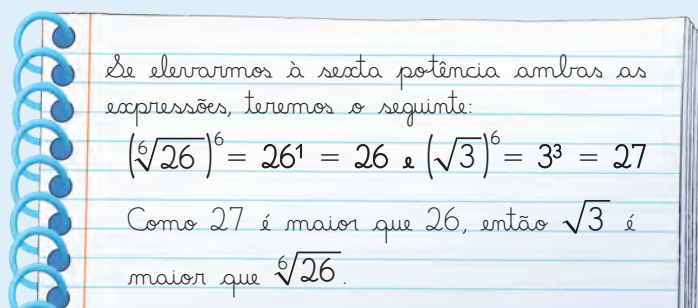 Se elevarmos à sexta potência ambas as
expressões, teremos o seguinte:
(⁶√26)⁶ = 26¹ = 26 e (√3)⁶ = 3³ = 27
Como 27 é maior que 26, então √3 é
maior que ⁶√26.